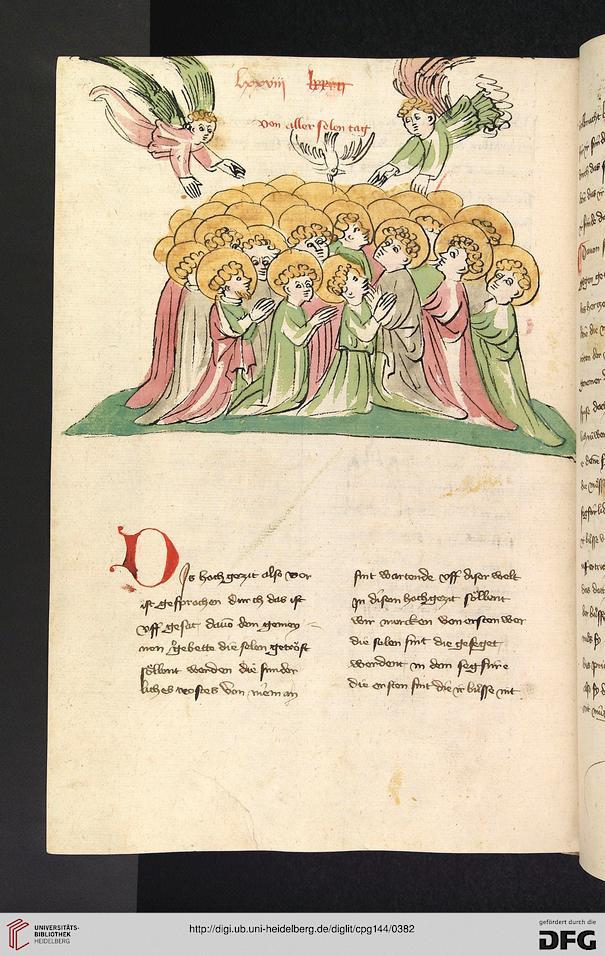 lxxviij lxxvij
von aller selen tag
Dis hochgezit also vor
ist gesprochen durch das ist
vff gesat dauō den gemey-
nen gebette die selen getröst
söllent werden die sunder-
liches trostes von nieman
sint wartende vff diser welt
In disem hochgezit söllent
wir mercken von ersten wer
die selen sint die gefeget
werdent in dem fegfüre
die ersten sint die ir büsse nit
UNIVERSITÄTS-
BIBLIOTHEK
HEIDELBERG
http://digi.ub.uni-heidelberg.de/diglit/cpg144/0382
gefördert durch die
DFG